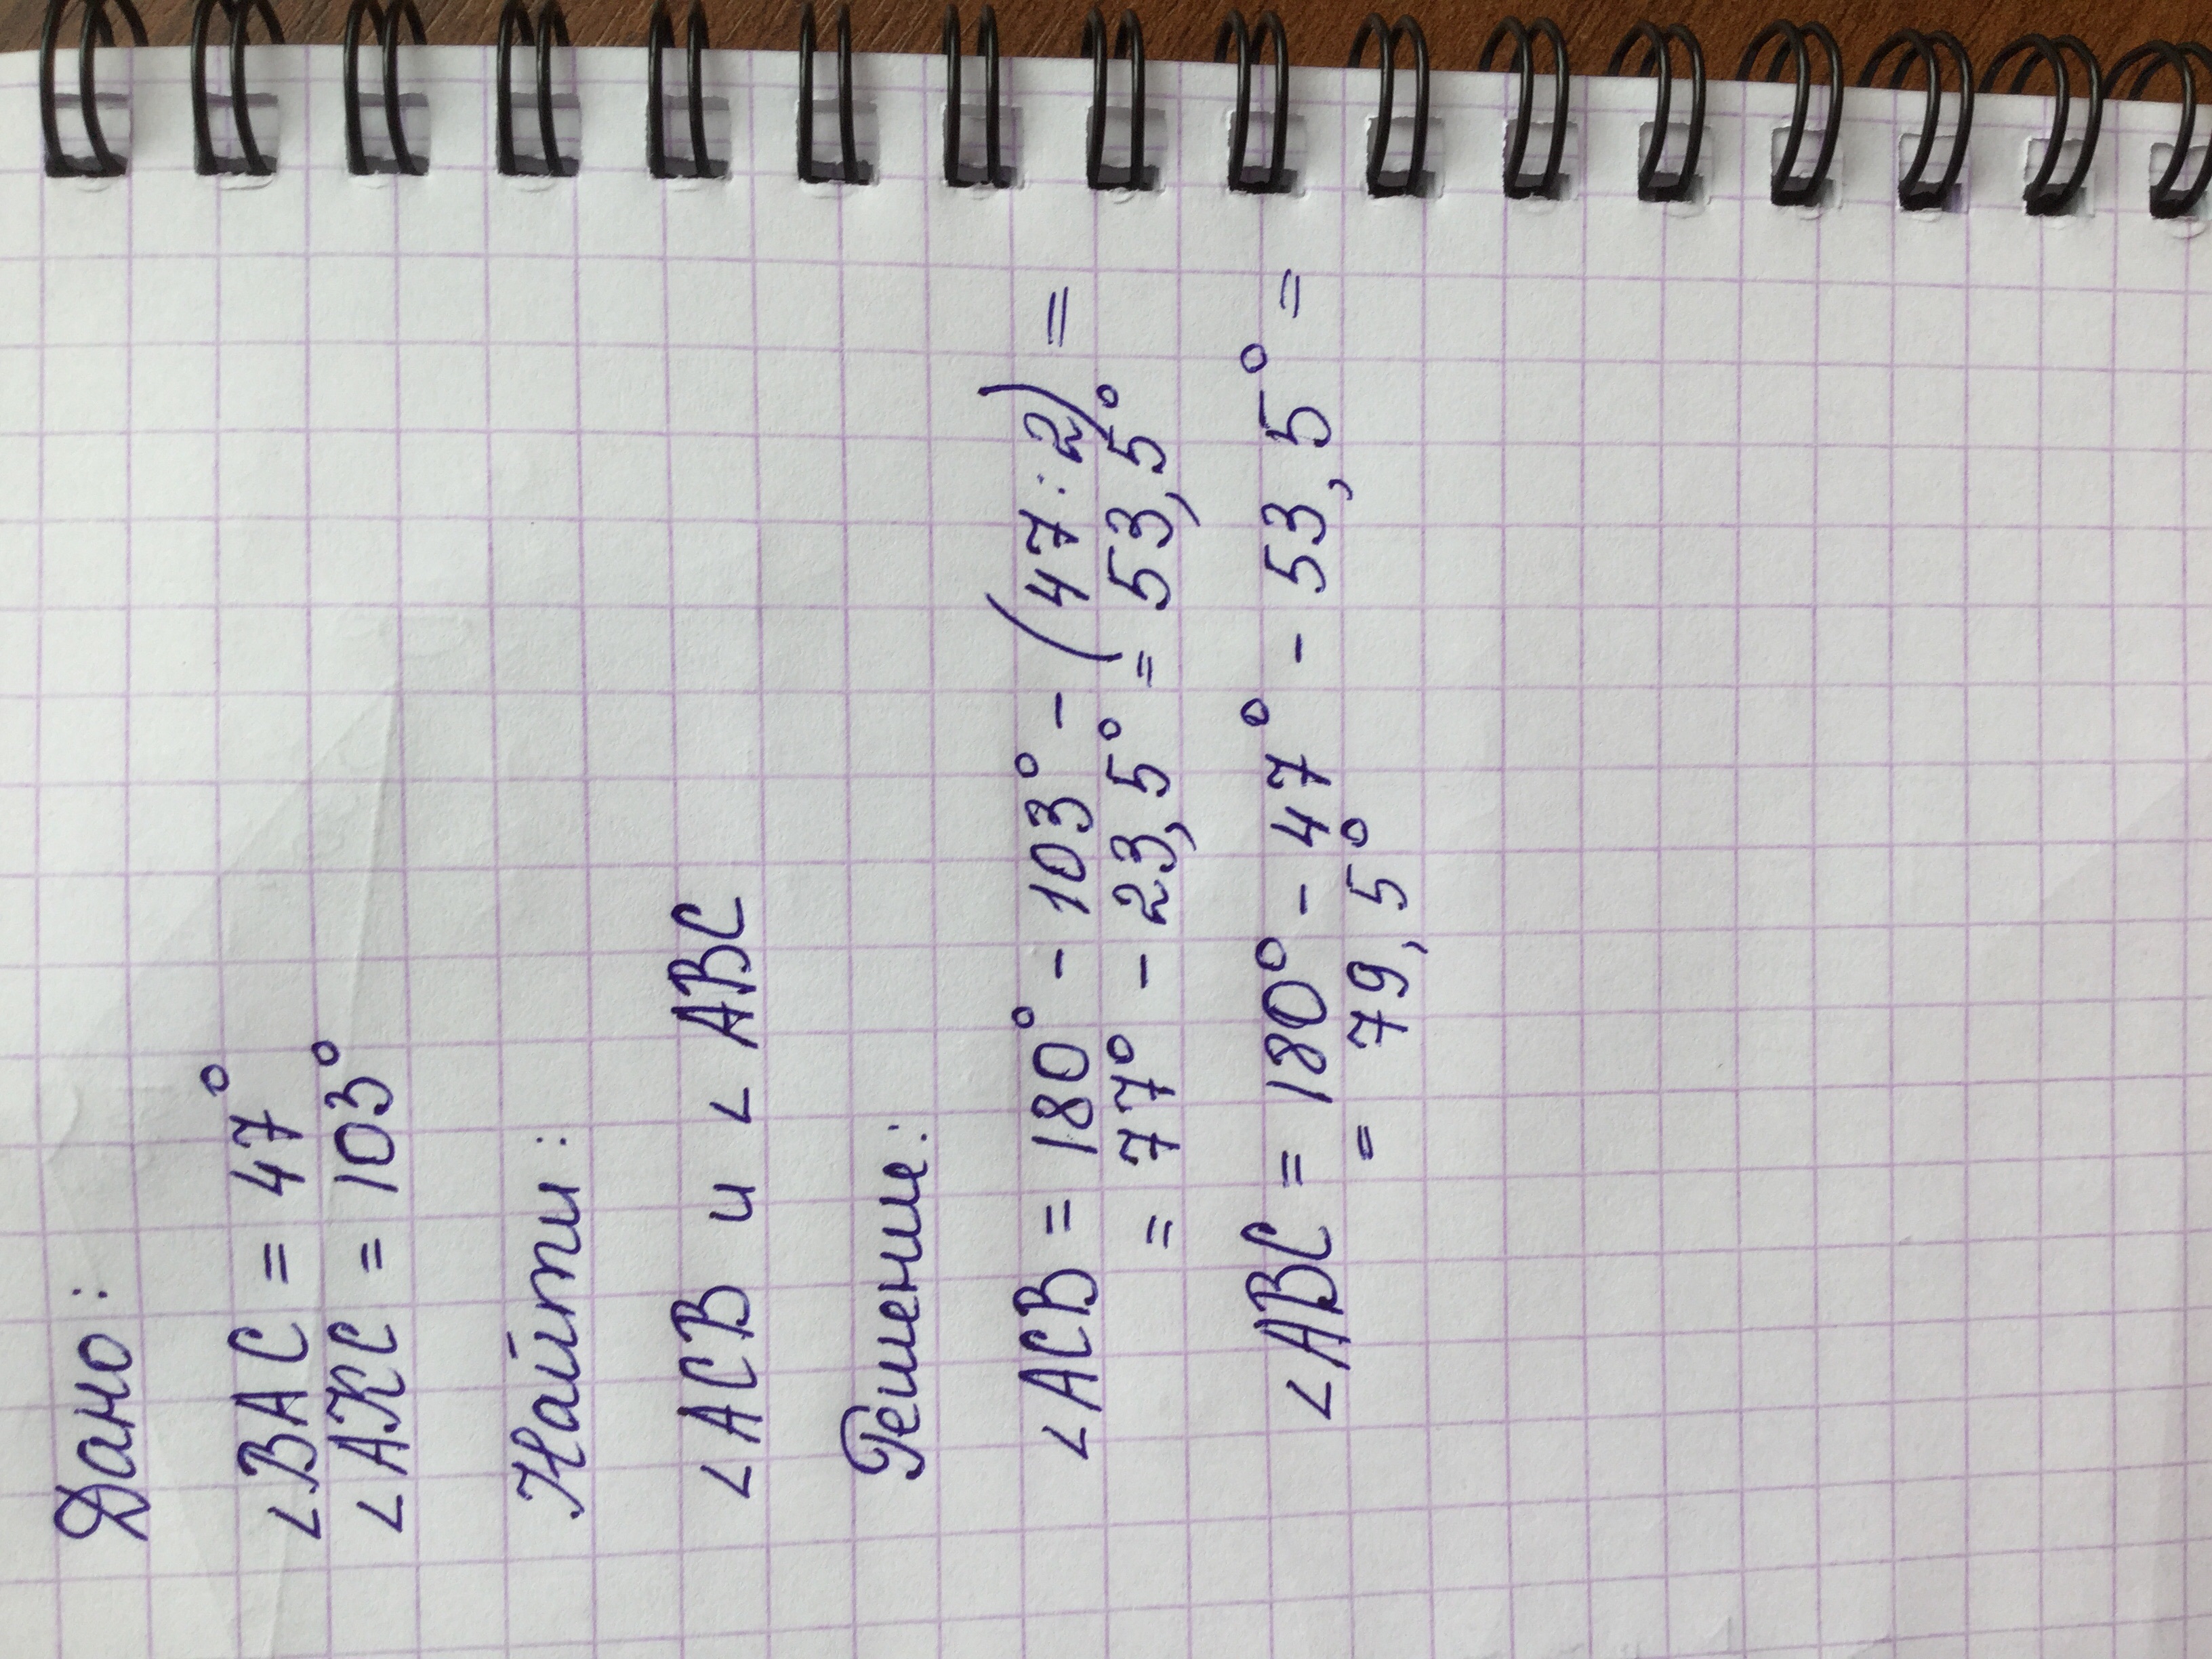 Дано:
∠BAC = 47°
∠AKC = 103°
Найти:
∠ACB и ∠ABC
Решение:
∠ACB = 180° - 103° - (47:2) =
= 77° - 23,5° = 53,5°
∠ABC = 180° - 47° - 53,5° =
= 79,5°